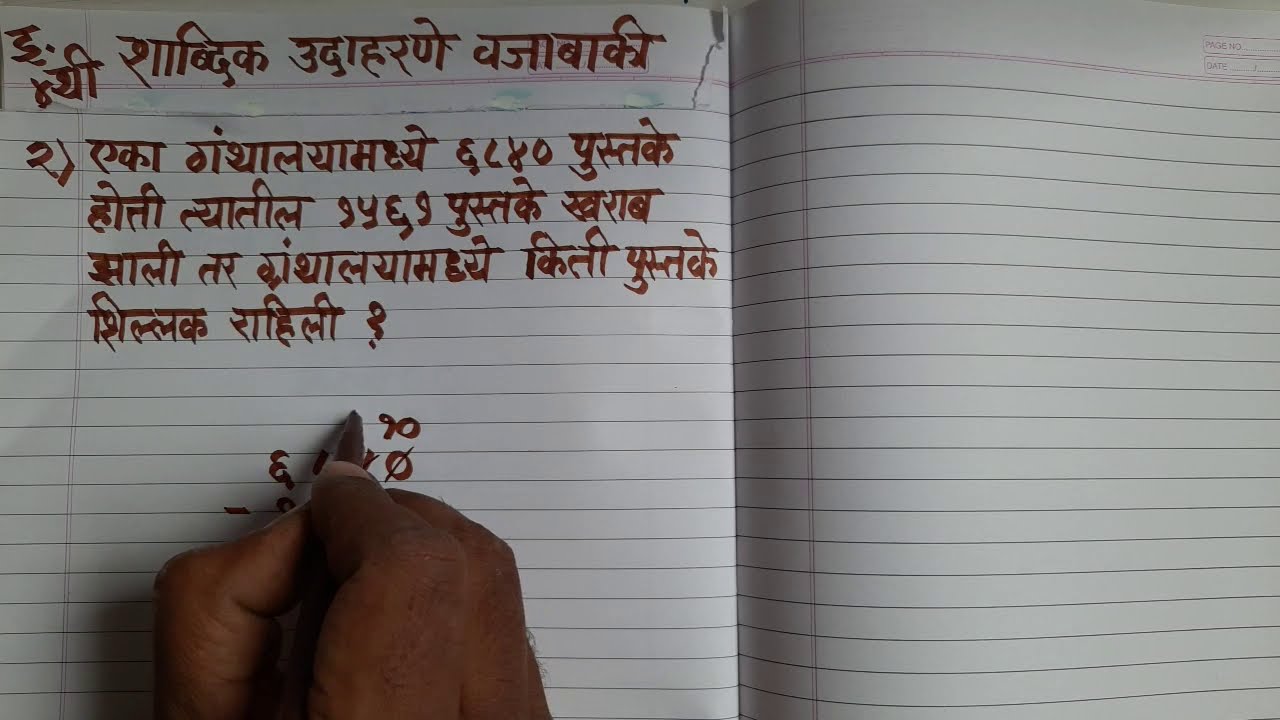 इ. ४थी शाब्दिक उदाहरणे वजाबाकी
PAGE NO.
DATE
२) एका ग्रंथालयामध्ये ६८४० पुस्तके
होती त्यातील १५६१ पुस्तके खराब
झाली तर ग्रंथालयामध्ये किती पुस्तके
शिल्लक राहिली ?
१०
६ ० 
-